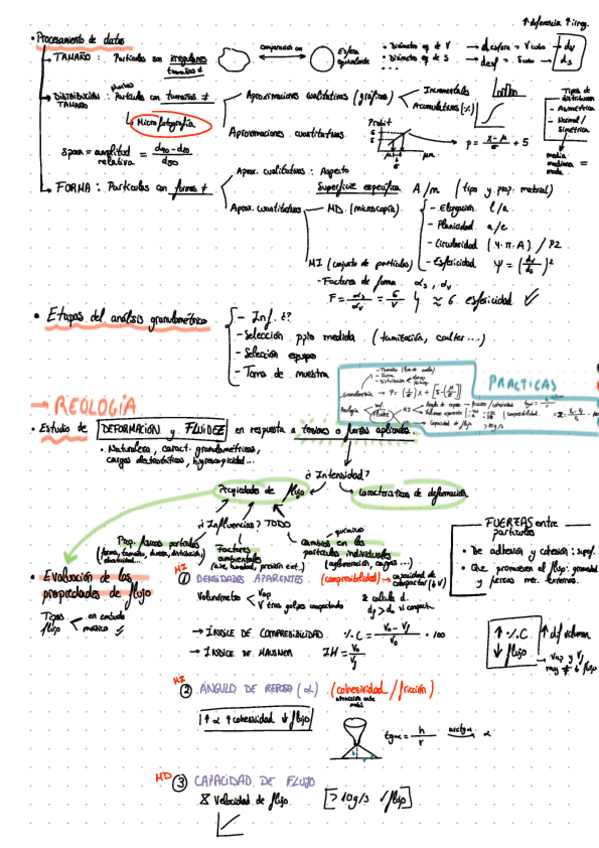 ↑ diferencia ↑ irreg.
• Procesamiento de datos
→ TAMAÑO: Partículas con irregulares tamaños ≠
comparación con
Esfera equivalente
• Diámetro eq de V → d esfera = V cubo → dv
• Diámetro eq de S → d esf = S cubo → ds
→ DISTRIBUCIÓN TAMAÑO: muchas Partículas con tamaños ≠
Microfotografía
Aproximaciones cualitativas (gráficas)
Incrementales
Acumulativas (%)
Aproximaciones cuantitativas
Probit
6
5
μm
P = x - μ / σ + 5
Tipos de distribución
- Asimétrica
- Normal / Simétrica
media
mediana
moda
span = amplitud relativa = d90 - d10 / d50
→ FORMA: Partículas con formas ≠
Aprox. cualitativas: Aspecto
Superficie específica A/m (tipo y prop. material)
Aprox. cuantitativas
MD (microscopía)
- Elongación l/a
- Planicidad a/e
- Circularidad (4·π·A) / P2
- Esfericidad Ψ = (dv/ds)²
MI (conjunto de partículas)
- Factores de forma αs, αv
F = αs/αv = 6/Ψ ≈ 6 esfericidad ✓
• Etapas del análisis granulométrico
- Inf. ¿?
- Selección ppio medida (tamización, coulter...)
- Selección equipo
- Toma de muestra
PRACTICAS
→ REOLOGÍA
• Estudio de DEFORMACIÓN y FLUIDEZ en respuesta a tensiones o fuerzas aplicadas.
• Naturaleza, caract. granulométricas, cargas electrostáticas, higroscopicidad...
¿Intensidad?
Propiedades de flujo
Características de deformación
¿Influencias? TODO
químico
Prop. físicas partículas (forma, tamaño, dureza, distribución, electrostat...)
Factores ambientales (aire, humedad, presión ext..)
Cambios en las partículas individuales (aglomeración, cargas...)
FUERZAS entre partículas
• De adhesión y cohesión: superf.
• Que promueven el flujo: gravedad y fuerzas mec. externas.
• Evaluación de las propiedades de flujo
Tipos flujo
en embudo
másico ✓
MI
① DENSIDADES APARENTES (compresibilidad) → capacidad de compactar (↓V)
Volunómetro
Vap
V tras golpes compactado
& calcula d.
df > d0 si compact.
→ ÍNDICE DE COMPRESIBILIDAD %C = V0 - Vf / V0 · 100
→ ÍNDICE DE HAUSNER IH = V0/Vf
↑ %C
↓ flujo
↑ dif volumen
→ Vap y Vf muy ≠ ↓ flujo
MI
② ÁNGULO DE REPOSO (α) (cohesividad / fricción)
atracción entre partíc
↑ α ↑ cohesividad ↓ flujo
tg α = h/r arctg α → α
MD
③ CAPACIDAD DE FLUJO
Velocidad de flujo [>10g/s ✓ flujo]